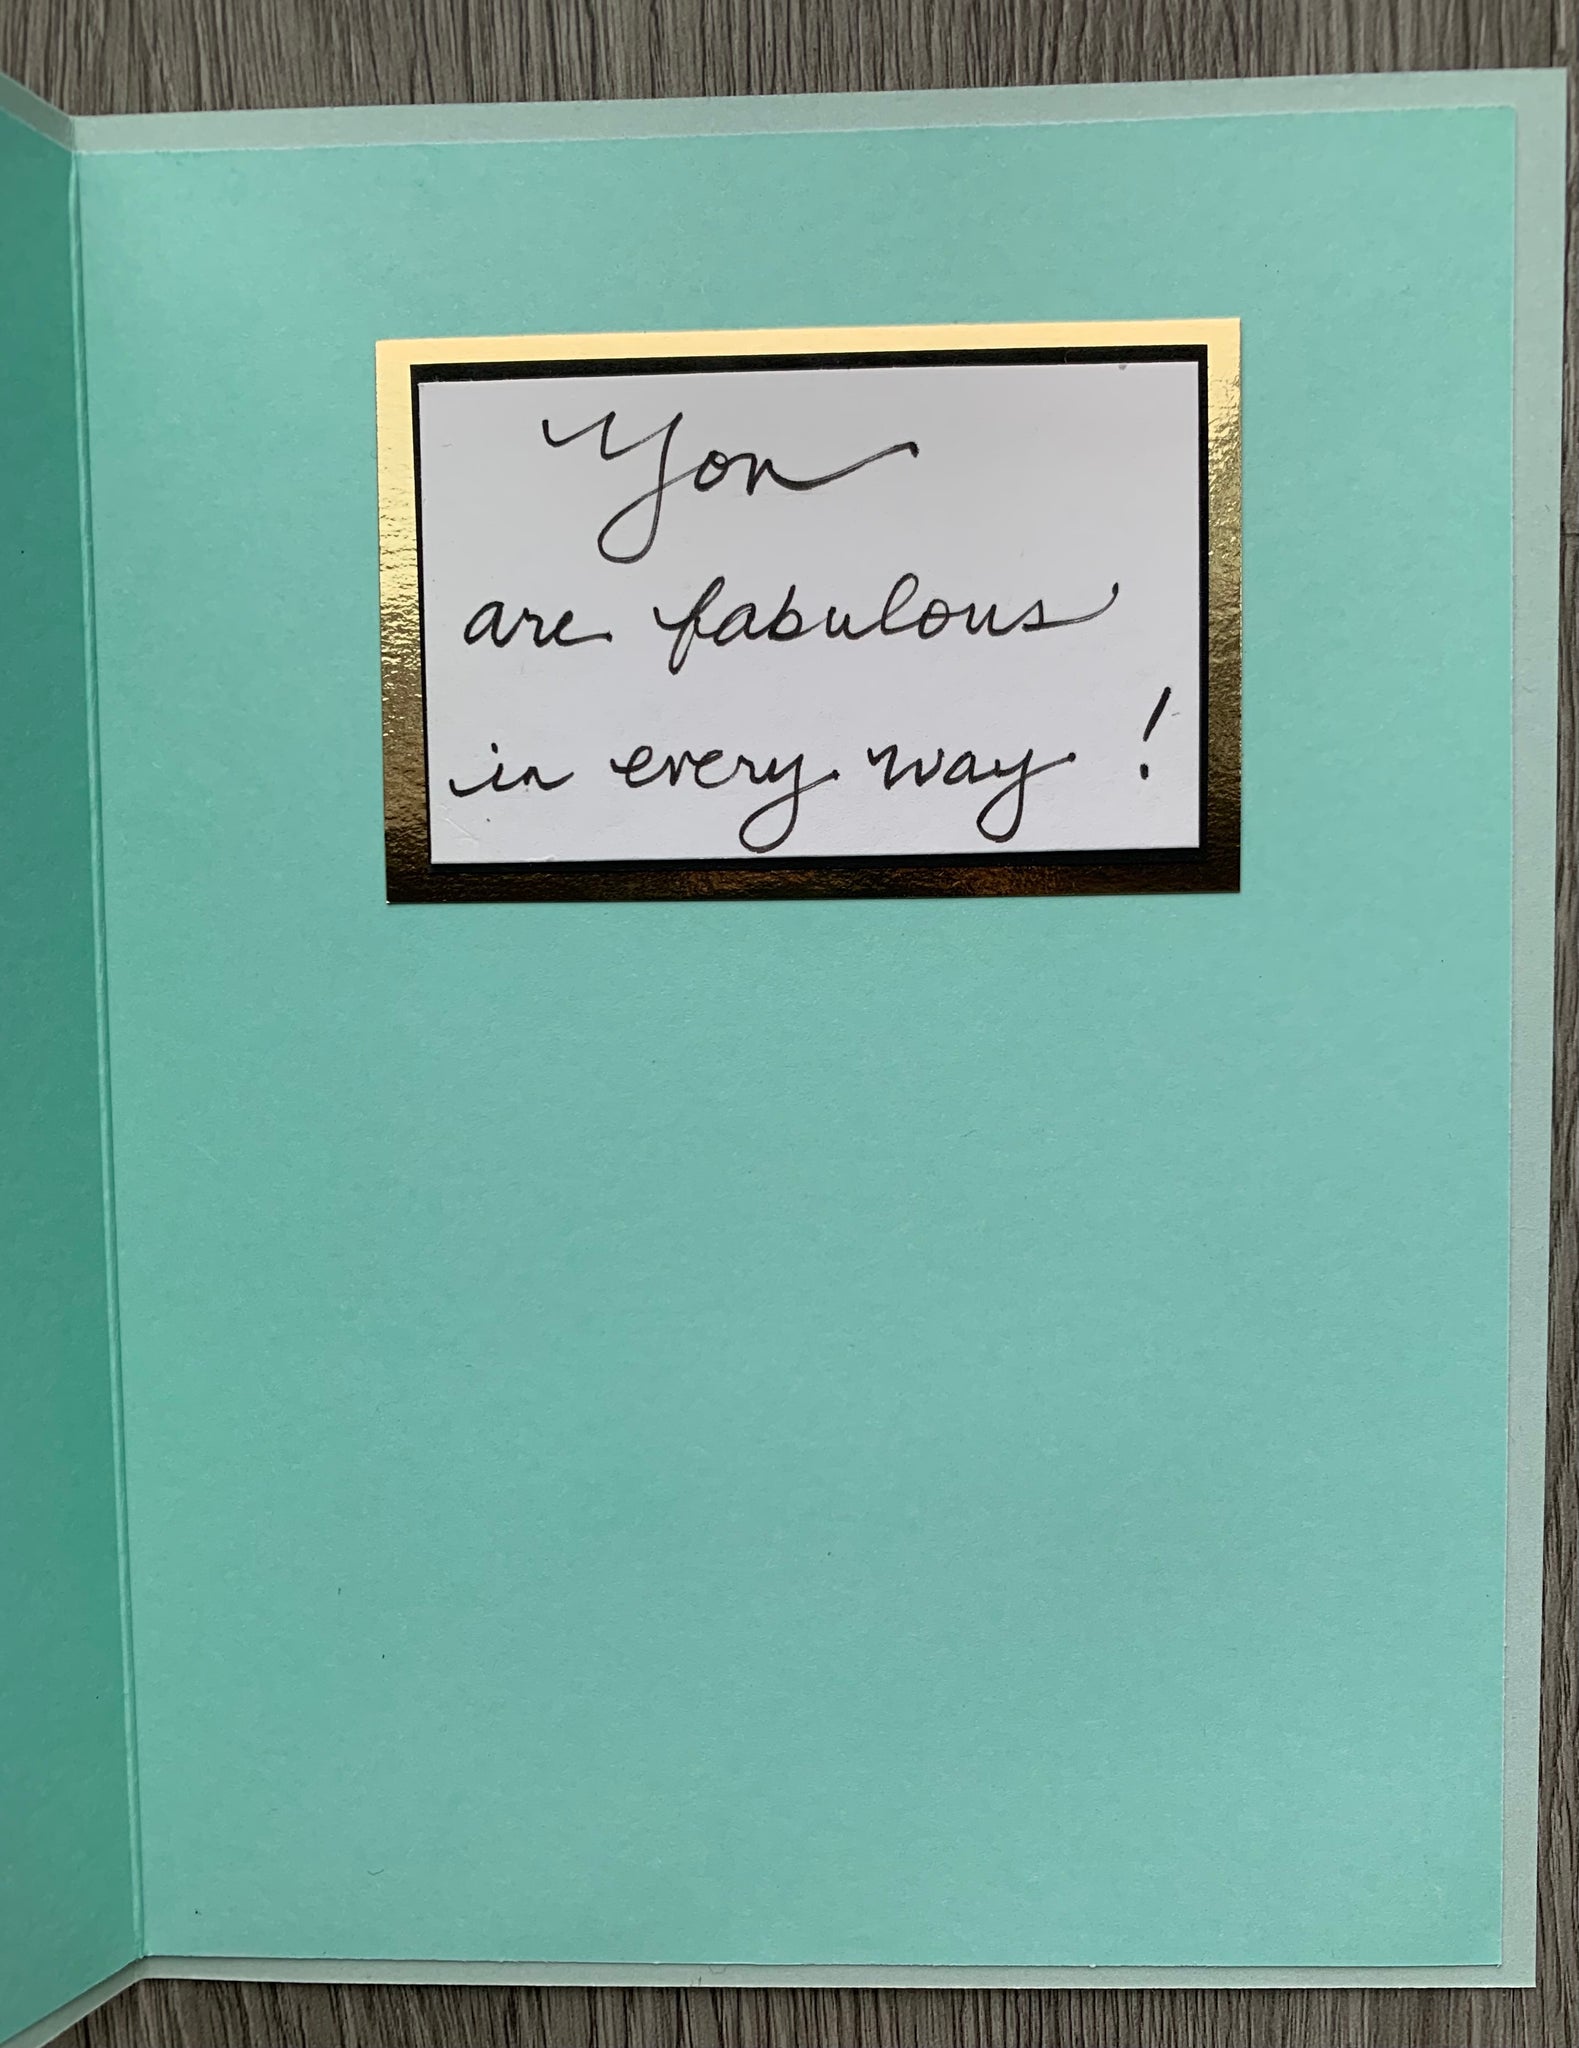 You
are fabulous
in every way!